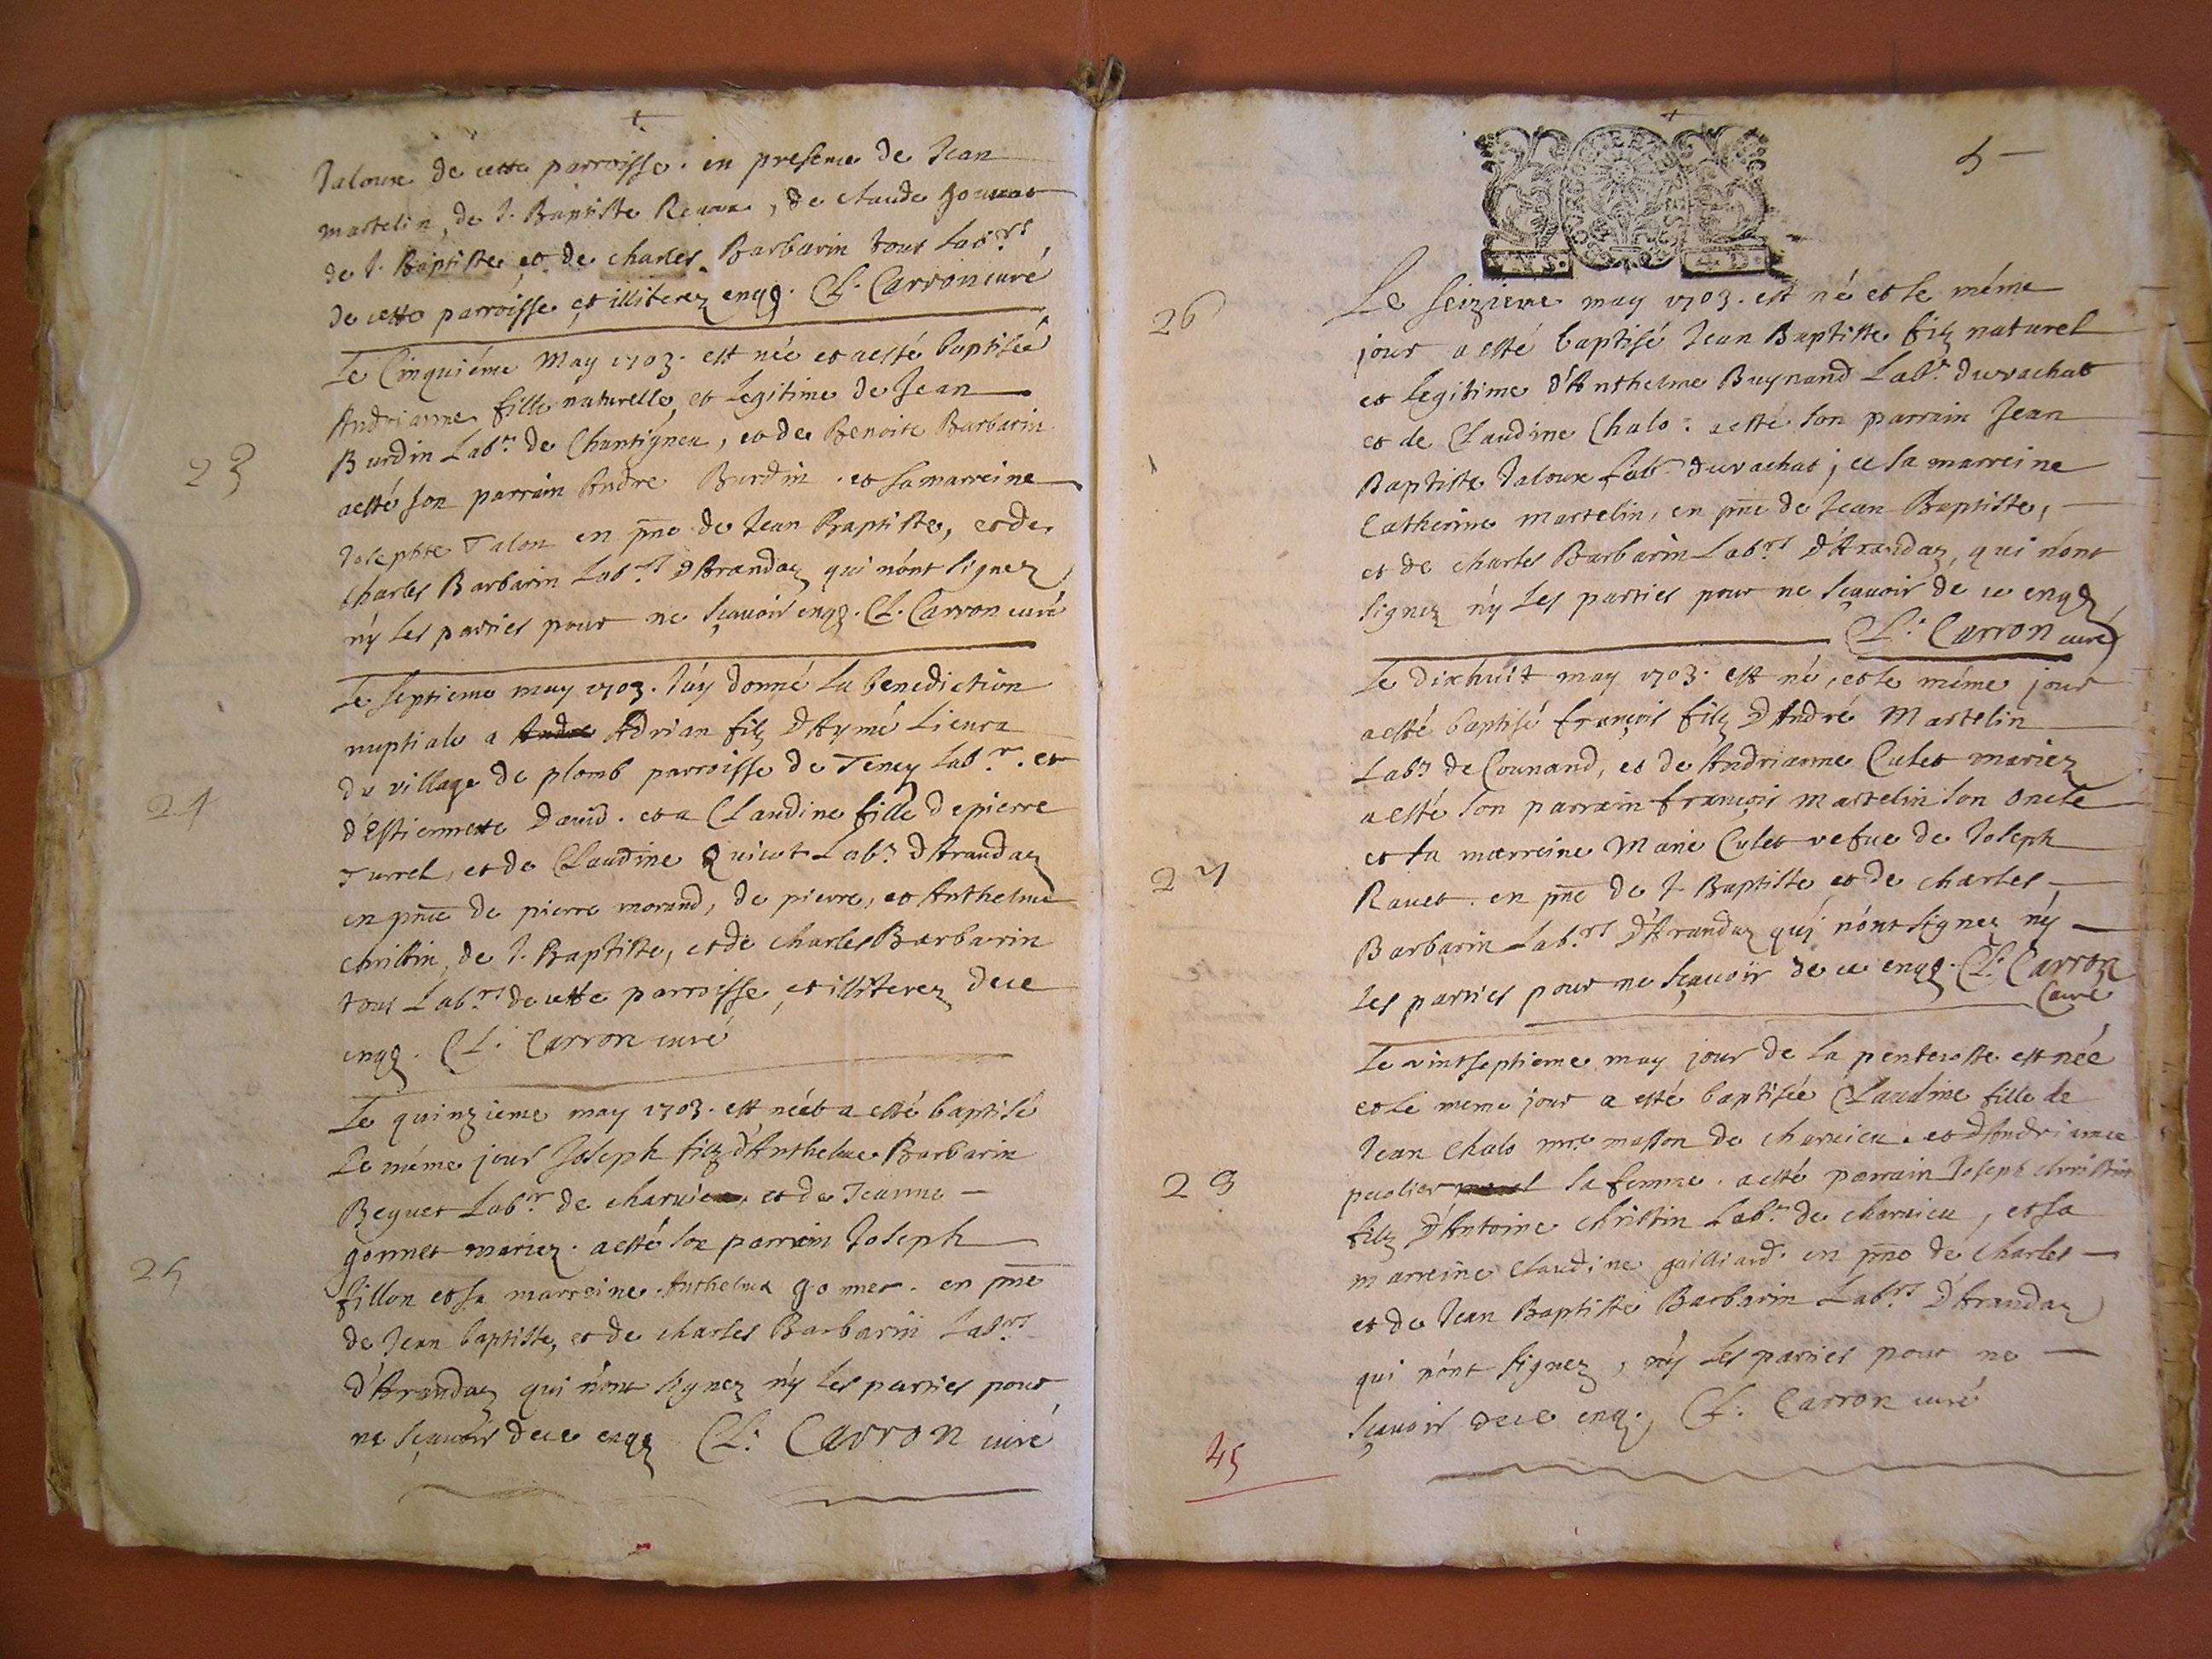 Jaloux de cette parroisse. en presence de Jean
martelin, de J. Baptiste, de claude
de J. Baptiste et de charles Barbarin tous Labrs
de cette parroisse et illiterez enqs. Cl. Carron curé
23
Le Cinquiéme May 1703. est née et a esté baptisée
Andrianne fille naturelle, et Legitime de Jean
Burdin Labr. de Chantigneu, et de Benoite Barbarin
a esté son parrain Andre Burdin. et sa marreine
Josephte Talon en pnce de Jean Baptiste, et de
charles Barbarin Labrs d'Arandaz qui n'ont signez
ny Les parties pour ne sçavoir enqs. Cl. Carron curé
24
Le septieme may 1703. J'ay donné La benediction
nuptiale a Adrian filz d'Aymé Lieura
du village de plomb parroisse de Teney Labr. et
d'Estiennette David. et a Claudine fille de pierre
Turrel, et de Claudine Quicot Labr. d'Arandaz
en pnce de pierre morand, de pierre, et Anthelme
christin, de J. Baptiste, et de charles Barbarin
tous Labrs de cette parroisse, et illiterez de ce
enqs. Cl. Carron curé
25
Le quinzieme may 1703. est né et a esté baptisé
Le méme jour Joseph filz d'Anthelme Barbarin
Beguet Labr. de charvieu, et de Jeanne
gonnet mariez. a esté son parrain Joseph
fillon et sa marreine Anthelma gonnet. en pnce
de Jean baptiste, et de charles Barbarin Labrs
d'Arandaz qui n'ont signez ny Les parties pour
ne sçavoir de ce enqs Cl. Carron curé
5
26
Le seizieme may 1703. est né et le méme
jour a esté baptisé Jean Baptiste filz naturel
et Legitime d'Anthelme Buynand Labr. du vachat
et de Claudine Chalo. a esté son parrain Jean
Baptiste Jaloux Labr. du vachat; et sa marreine
Catherine martelin, en pnce de Jean Baptiste,
et de charles Barbarin Labrs d'Arandaz, qui n'ont
signez n'y Les parties pour ne sçavoir de ce enqs
Cl. Carron curé
27
Le dixhuit may 1703. est né, et le méme jour
a esté baptisé françois filz d'André Martelin
Labr. de Counand, et de Andrianne Culet mariez
a esté son parrain françois martelin son oncle
et sa marreine Marie Culet vefue de Joseph
Ravet. en pnce de J. Baptiste et de charles
Barbarin Labrs d'Arandaz qui n'ont signez n'y
Les parties pour ne sçavoir de ce enqs. Cl. Carron
Curé
28
Le vintseptieme may jour de la pentecoste est née
et le meme jour a esté baptisée Claudine fille de
Jean Chalo mre masson de charvieu. et d'Andrianne
pecolier sa femme. a esté parrain Joseph christin
filz d'Antoine christin Labr. de charvieu, et sa
marreine Claudine gailliard. en pnce de Charles
et de Jean Baptiste Barbarin Labrs d'Arandaz
qui n'ont signez, n'y Les parties pour ne
sçavoir de ce enq. Cl. Carron curé
45